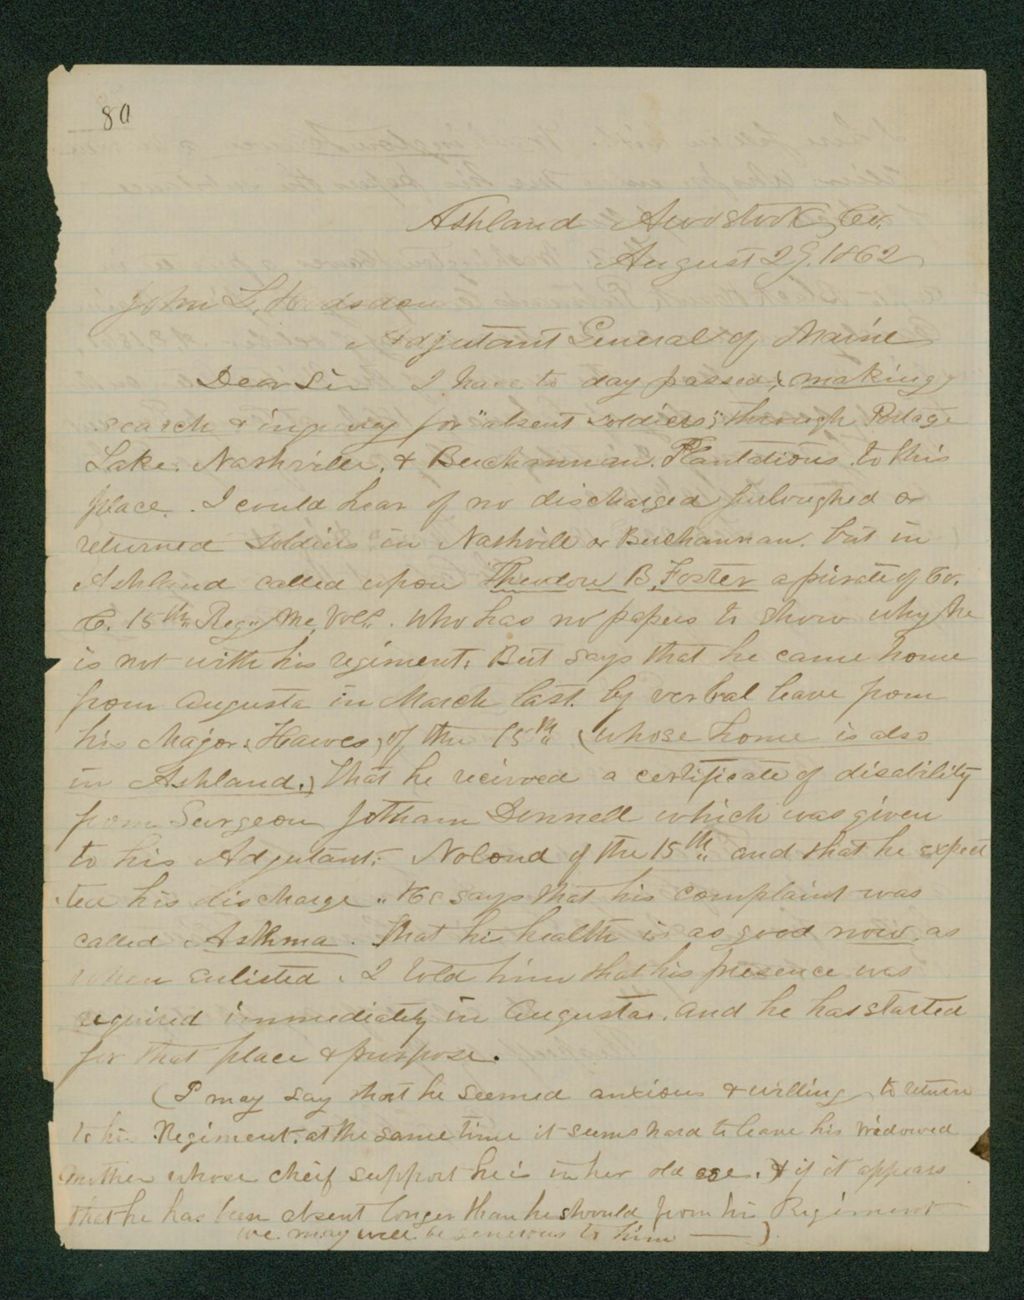 80
Ashland Aroostook Co.
August 29. 1862
John L. Hodsdon
Adjutant General of Maine
Dear Sir I have to day passed, making,
search & inquiry for "absent soldiers", through Portage
Lake. Nashville, & Buchannan. Plantations. to this
place. I could hear of no discharged furloughed or
returned soldiers in Nashvill or Buchannan. but in
Ashland called upon Theodore B. Foster a private of Co.
C. 15th Reg. Me. Vols. who has no papers to show why he
is not with his regiment. But says that he came home
from Augusta in March last. by verbal leave from
his Major, Hawes, of the 15th (whose home is also
in Ashland.) That he recieved a certificate of disability
from Surgeon Jotham Donnell which was given
to his Adjutant. Noloud of the 15th and that he expec
ted his discharge. He says that his complaint was
called Asthma. That his health is as good now. as
when enlisted. I told him that his presence was
required immediately in Augusta. and he has started
for that place & purpose.
(I may say that he seemed anxious & willing to return
to his Regiment. at the same time it seems hard to leave his widowed
mother whose cheif support he is in her old age. & if it appears
that he has been absent longer than he should from his Regiment
we may well be generous to him — )